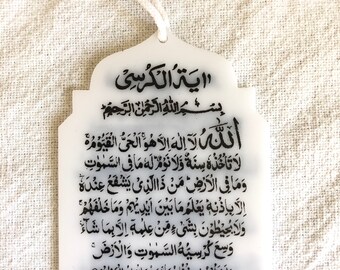 اٰیَةُ الْكُرْسِیْ
بِسْمِ اللّٰهِ الرَّحْمٰنِ الرَّحِیْمِ
اَللّٰهُ لَاۤ اِلٰهَ اِلَّا هُوَ اَلْحَیُّ الْقَیُّوْمُ ۚ
لَا تَاْخُذُهٗ سِنَةٌ وَّلَا نَوْمٌ لَهٗ مَا فِی السَّمٰوٰتِ
وَمَا فِی الْاَرْضِ مَنْ ذَا الَّذِیْ یَشْفَعُ عِنْدَهٗۤ
اِلَّا بِاِذْنِهٖ یَعْلَمُ مَا بَیْنَ اَیْدِیْهِمْ وَمَا خَلْفَهُمْ
وَلَا یُحِیْطُوْنَ بِشَیْءٍ مِّنْ عِلْمِهٖۤ اِلَّا بِمَا شَآءَ
وَسِعَ كُرْسِیُّهُ السَّمٰوٰتِ وَالْاَرْضَ